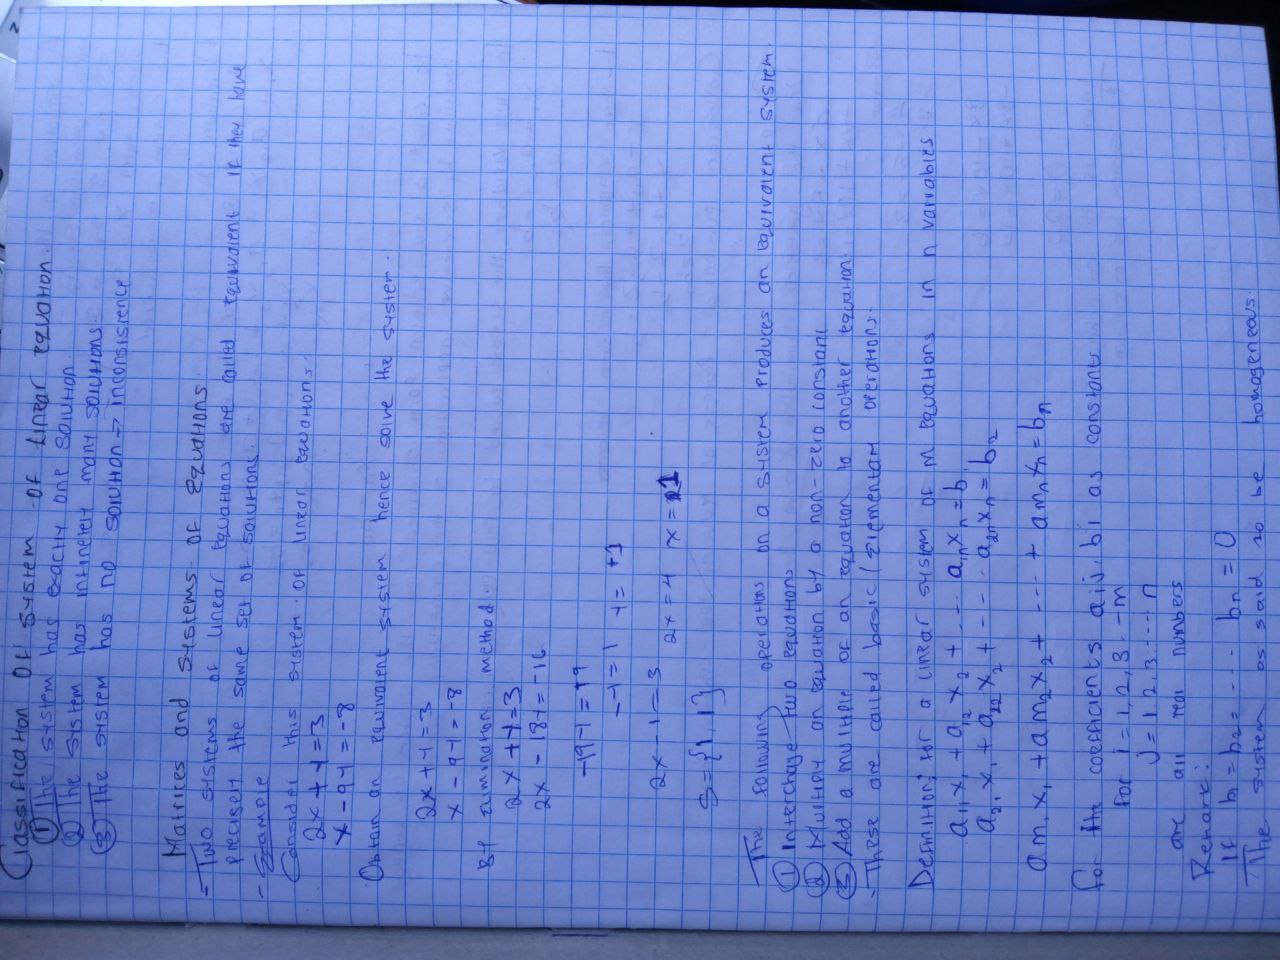 Classification Of system of linear equation.
① The system has exactly one solution.
② The system has infinetely many solutions.
③ The system has no solution → inconsistence
Matrices and systems of equations.
- Two systems of linear equations are called equivalent if they have
precisely the same set of solutions.
- Example
Consider this system of linear equations.
2x + y = 3
x - 9y = -8
Obtain an equivalent system hence solve the system.
2x + y = 3
x - 9y = -8
By elimination method.
2x + y = 3
2x - 18y = -16
-19y = 19
-y = 1 y = +1
2x - 1 = 3 2x = 4 x = 1
S = {1, 1}
The following operations on a system produces an equivalent system.
① Interchage two equations
② Multiply an equation by a non-zero constant
③ Add a multiple of an equation to another equation.
- These are called basic / Elementary operations.
Definition; for a linear system of m equations in n variables
a₁₁x₁ + a₁₂x₂ + --- a₁ₙxₙ = b₁
a₂₁x₁ + a₂₂x₂ + ---- a₂ₙxₙ = b₂
am₁x₁ + am₂x₂ + ---- + amₙxₙ = bₙ
for the coefficients aij, bi as constants
for i = 1, 2, 3 -- m
j = 1, 2, 3 ---- n
are all real numbers
Remark:
If b₁ = b₂ = ---- bₙ = 0
The system os said to be homogeneous.